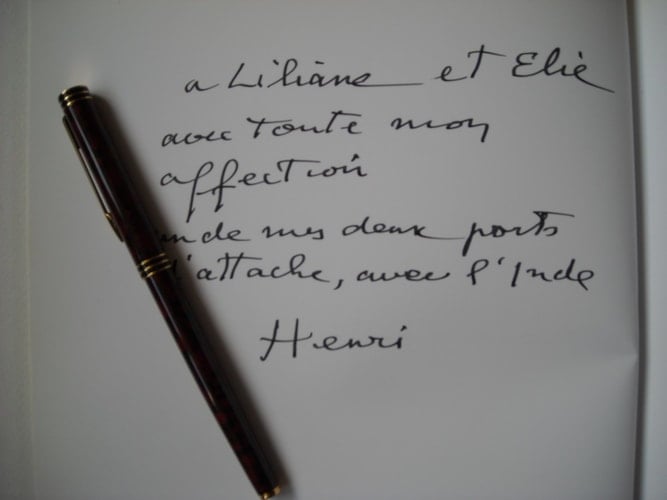 a Liliane et Elie
avec toute mon
affection
un de mes deux ports
d'attache, avec l'Inde
Henri